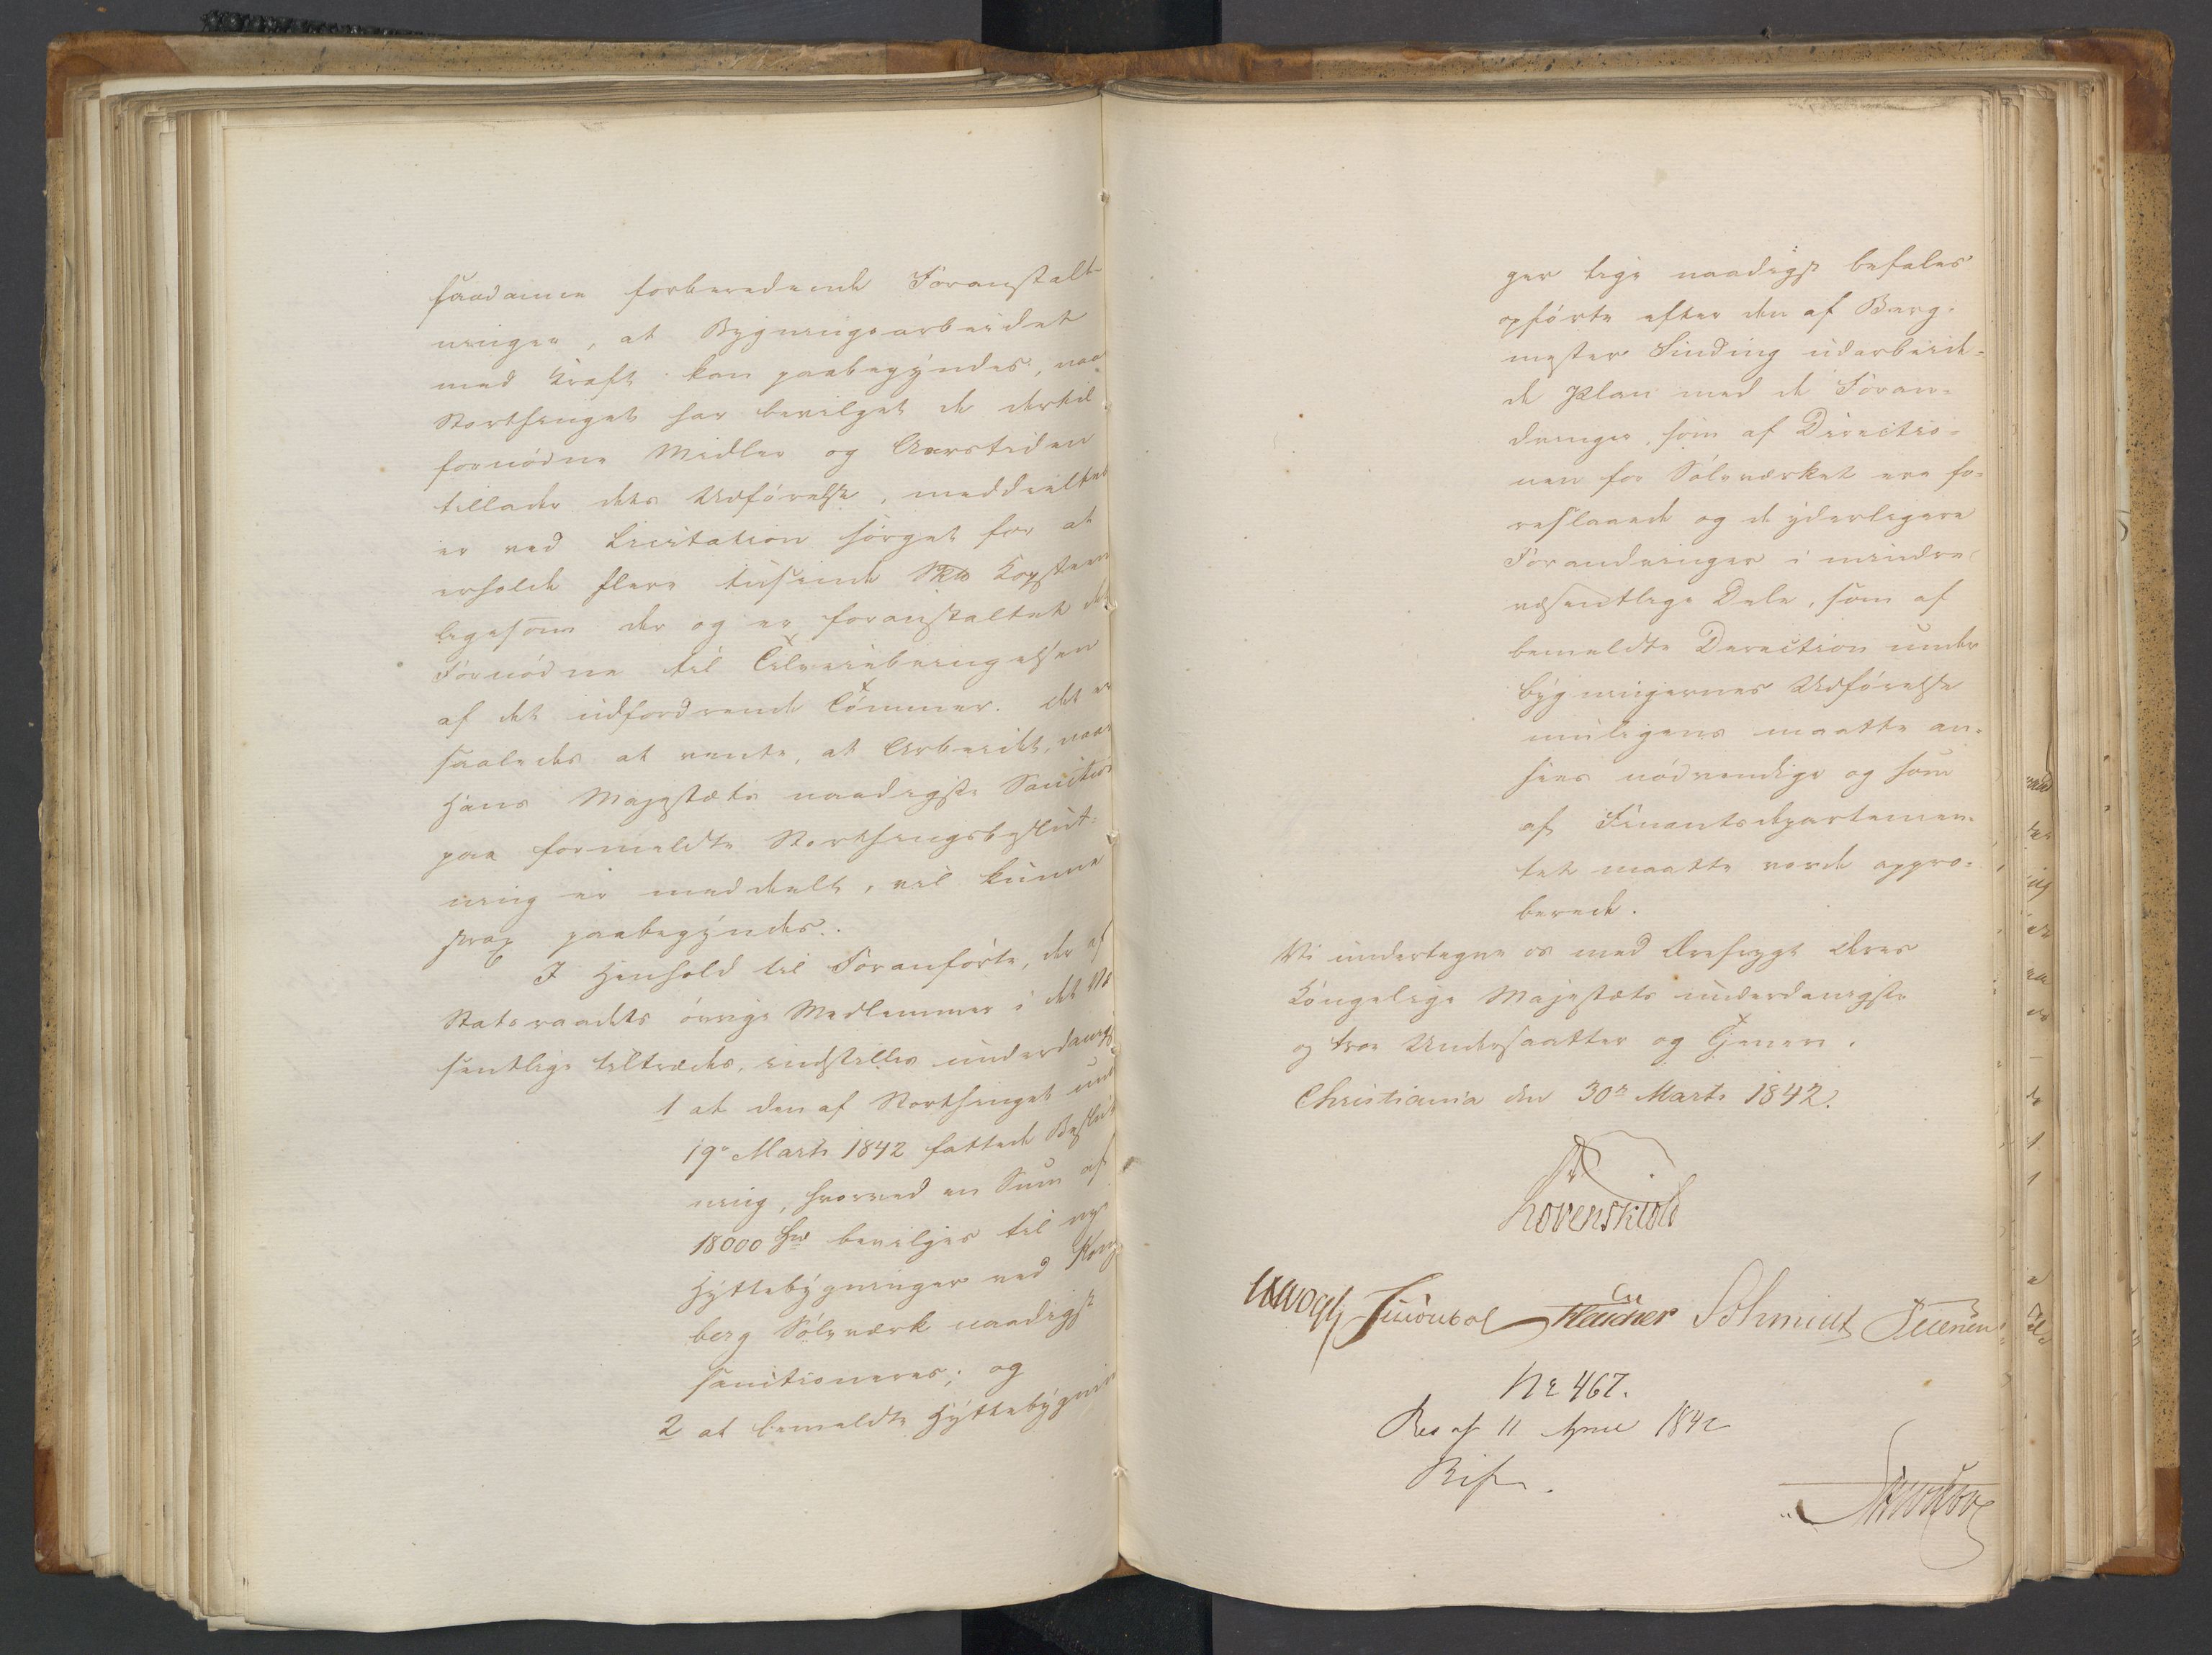 saadanne forberedende Foranstalt-
ninger, at Bygningsarbeidet
med Kraft kan paabegyndes, naar
Storthinget har bevilget de dertil
fornödne Midler og Aarstiden
tillader dets Udförelse, meddeelte
er ved Licitation sörget for at
erholde flere tusinde Kopsteen
ligesom der og er foranstaltet det
Fornödne til Tilveiebringelsen
af det udfordrende Tömmer. Det er
saaledes at vente, at Arbeidet, naar
Hans Majestæts naadigste Sanction
paa formeldte Storthingsbeslut-
ning er meddeelt, vil kunne
strax paabegyndes.
I Henhold til Foranförte, der af
Statsraadets övrige Medlemmer i det Væ
sentlige tiltrædes, indstilles underdanigst
1 at den af Storthinget under
19de Marts 1842 fattede Beslut
ning, hvorved en Sum af
18000 Spd bevilges til nye
Hyttebygninger ved Kongs
berg Sölvværk naadigst
sanctioneres; og
2 at bemeldte Hyttebygnin
ger lige naadigst befales
opförte efter den af Berg-
mester Sinding udarbeide-
de Plan med de Foran-
dringer, som af Directio-
nen for Sölvværket ere fo-
reslaaede og de yderligere
Forandringer i mindre
væsentlige Dele, som af
bemeldte Direction under
bygningernes Udförelse
muligens maatte an-
sees nödvendige og som
af Finantsdepartemen-
tet maatte vorde appro-
berede.
Vi undertegne os med Ærefrygt Deres
Kongelige Majestæts underdanigste
og troe Undersaatter og Tjenere.
Christiania den 30te Marts 1842.
Løvenskiold
Vogt Fleischer Schmidt
No 467.
Res af 11 April 1842